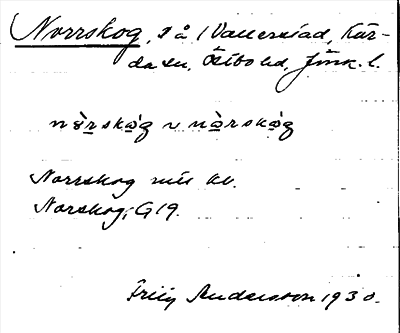 Norrskog, s å i Vallerstad, Kär-
da sn, Östbo hd, Jönk. l.
nòrskog v nòrskog
Norrskog mtl kv.
Norskog, G 19.
Frity Andersson 1930.